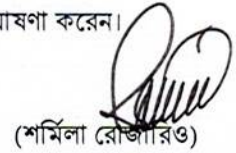 ঘোষণা করেন।
(শর্মিলা রোজারিও)